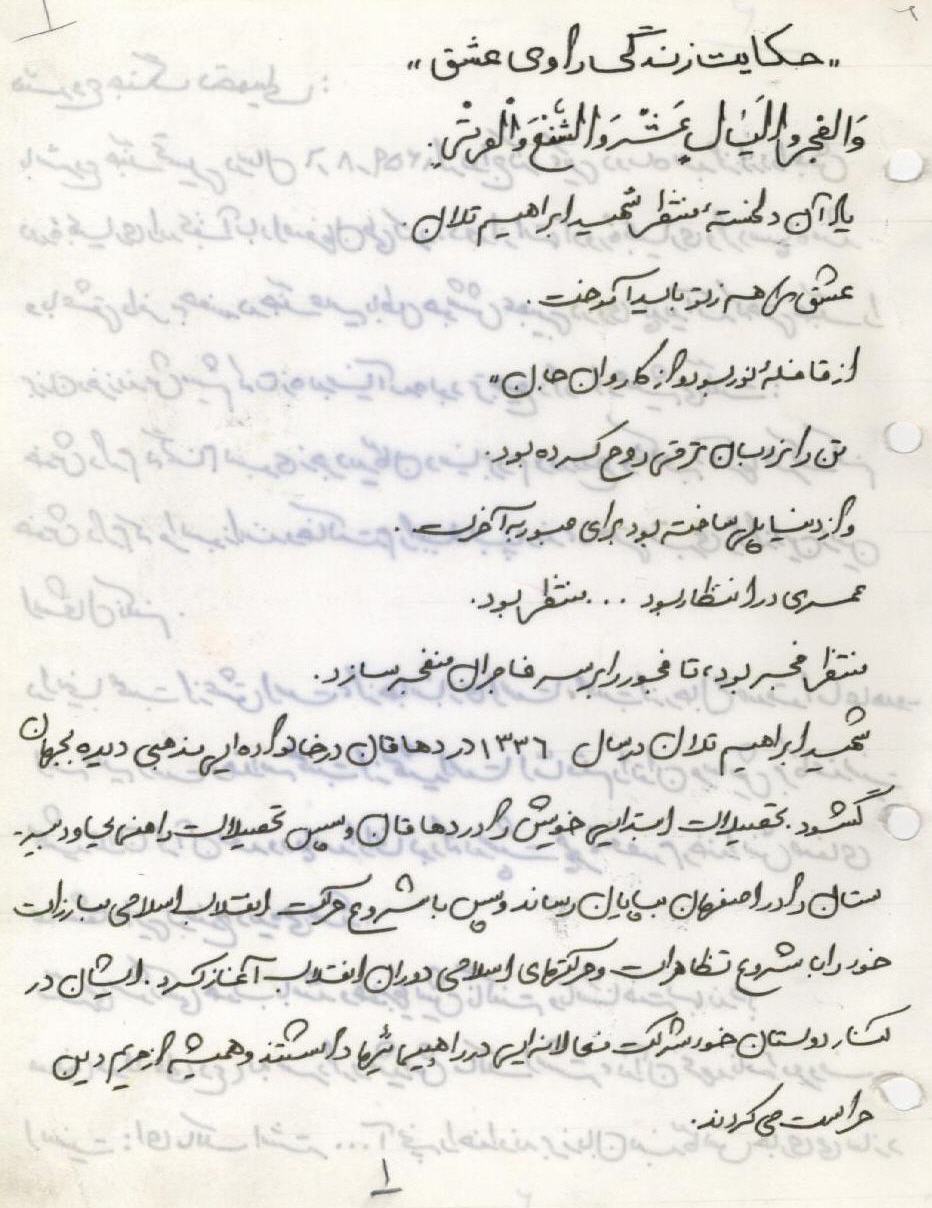 ۱
"حکایت زندگی راوی عشق"
وَالفجر وَ لَیٰالٍ عَشْرٍ وَالشَّفْعِ وَالْوَتْرِ.
یاد آن دلخستهٔ منتظر شهید ابراهیم تلان.
عشق را هم ز تو باید آموخت.
از قافلهٔ نور بود و از کاروان جان"
تن را نردبان ترقی روح کرده بود.
و از دنیا پلی ساخته بود برای عبور به آخرت.
عمری در انتظار بود ... منتظر بود.
منتظر فجر بود، تا فجور را بر سر فاجران منفجر سازد.
شهید ابراهیم تلان در سال ۱۳۳۶ در دهاقان در خانواده‌ایی مذهبی دیده بجهان
گشود. تحصیلات ابتدایی خویش را در دهاقان و سپس تحصیلات راهنمایی و دبیر-
ستان را در اصفهان بپایان رساند و سپس با شروع حرکت انقلاب اسلامی مبارزات
خود را با شروع تظاهرات و حرکتهای اسلامی دوران انقلاب آغاز کرد. ایشان در
کنار دوستان خود شرکت فعالانه‌ایی در راهپیمائیها داشتند و همیشه از حریم دین
حراست می کردند.
۱